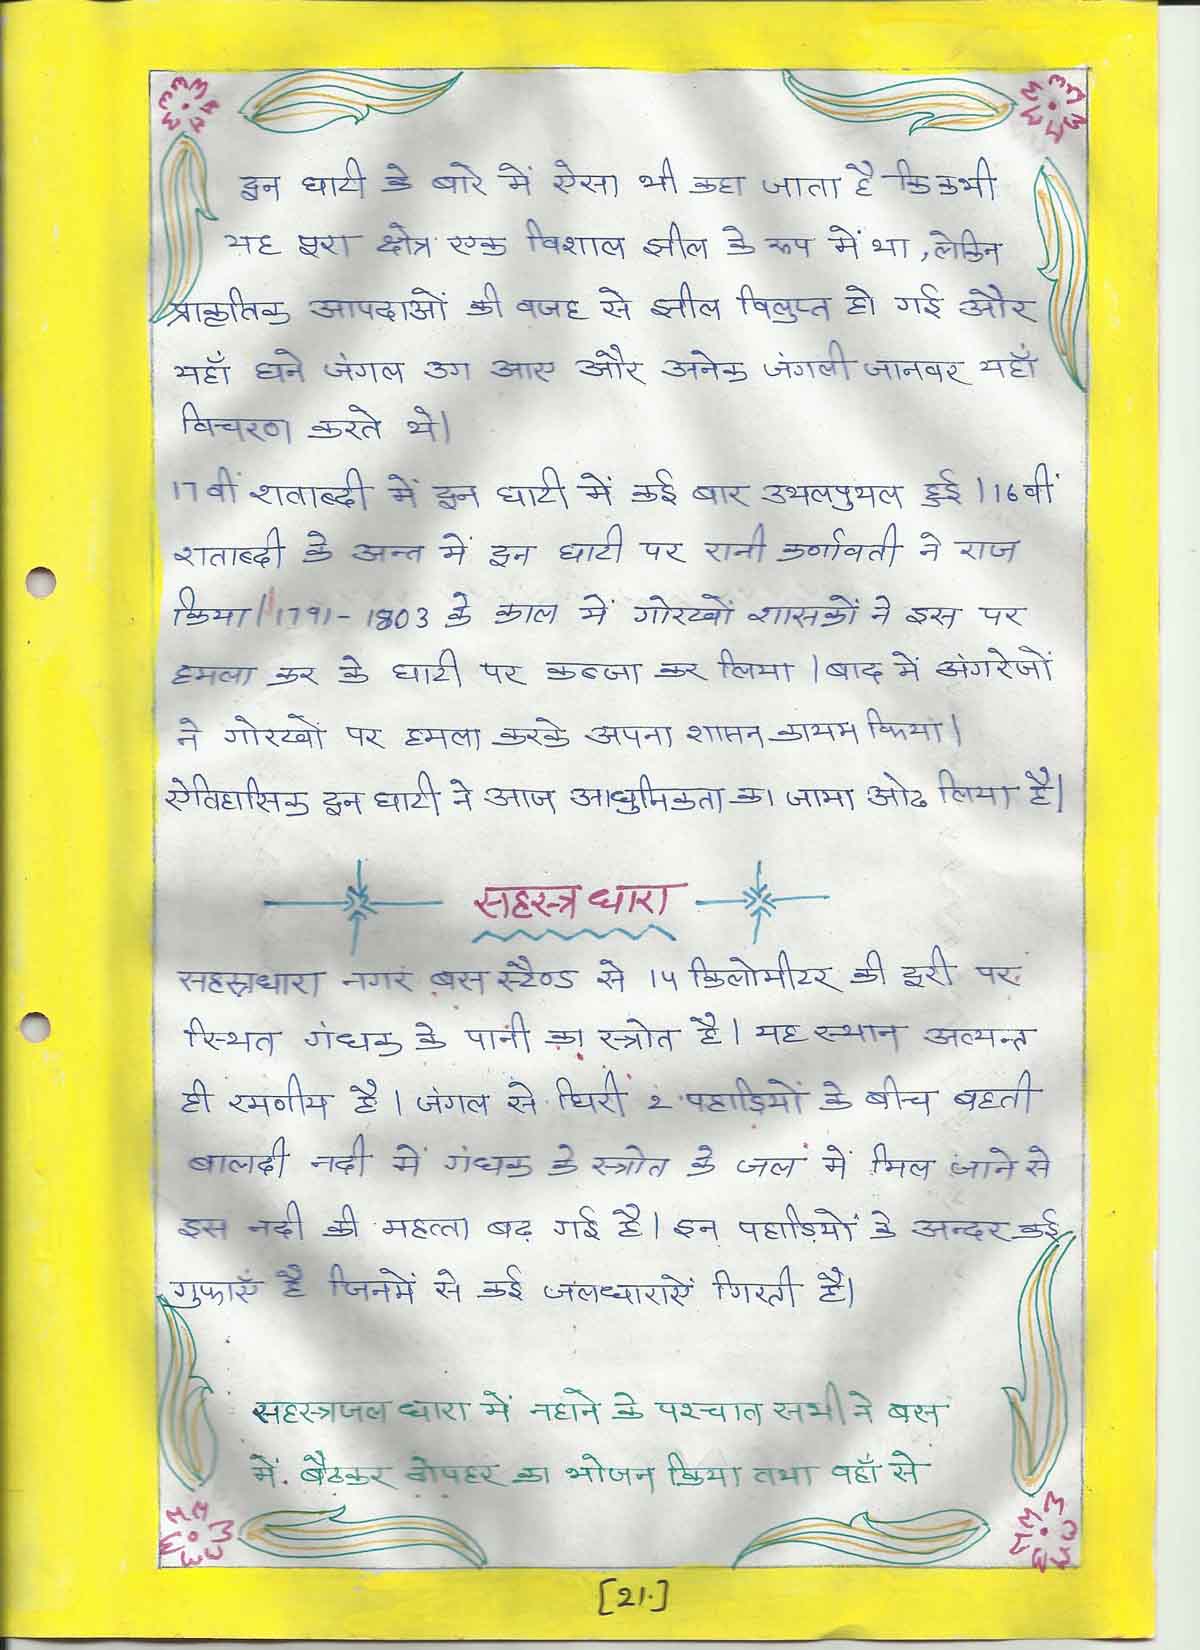 इन घाटी के बारे में ऐसा भी कहा जाता है कि कभी
यह पूरा क्षेत्र एक विशाल झील के रुप में था, लेकिन
प्राकृतिक आपदाओं की वजह से झील विलुप्त हो गई और
यहाँ घने जंगल उग आए और अनेक जंगली जानवर यहाँ
विचरण करते थे।
17वीं शताब्दी में इन घाटी में कई बार उथलपुथल हुई। 16वीं
शताब्दी के अन्त में इन घाटी पर रानी कर्णावती ने राज
किया। 1791-1803 के काल में गोरखों शासकों ने इस पर
हमला कर के घाटी पर कब्जा कर लिया। बाद में अंगरेजों
ने गोरखों पर हमला करके अपना शासन कायम किया।
ऐतिहासिक इन घाटी ने आज आधुनिकता का जामा ओढ लिया है।
सहस्त्र धारा
सहस्त्रधारा नगर बस स्टैण्ड से 14 किलोमीटर की दूरी पर
स्थित गंधक के पानी का स्त्रोत है। यह स्थान अत्यन्त
ही रमणीय है। जंगल से घिरी 2 पहाड़ियों के बीच बहती
बालदी नदी में गंधक के स्त्रोत के जल में मिल जाने से
इस नदी की महत्ता बढ़ गई है। इन पहाड़ियों के अन्दर कई
गुफाएँ है जिनमें से कई जलधाराएें गिरती है।
सहस्त्रजल धारा में नहाने के पश्चात सभी ने बस
में बैठकर दोपहर का भोजन किया तथा वहाँ से
[21.]